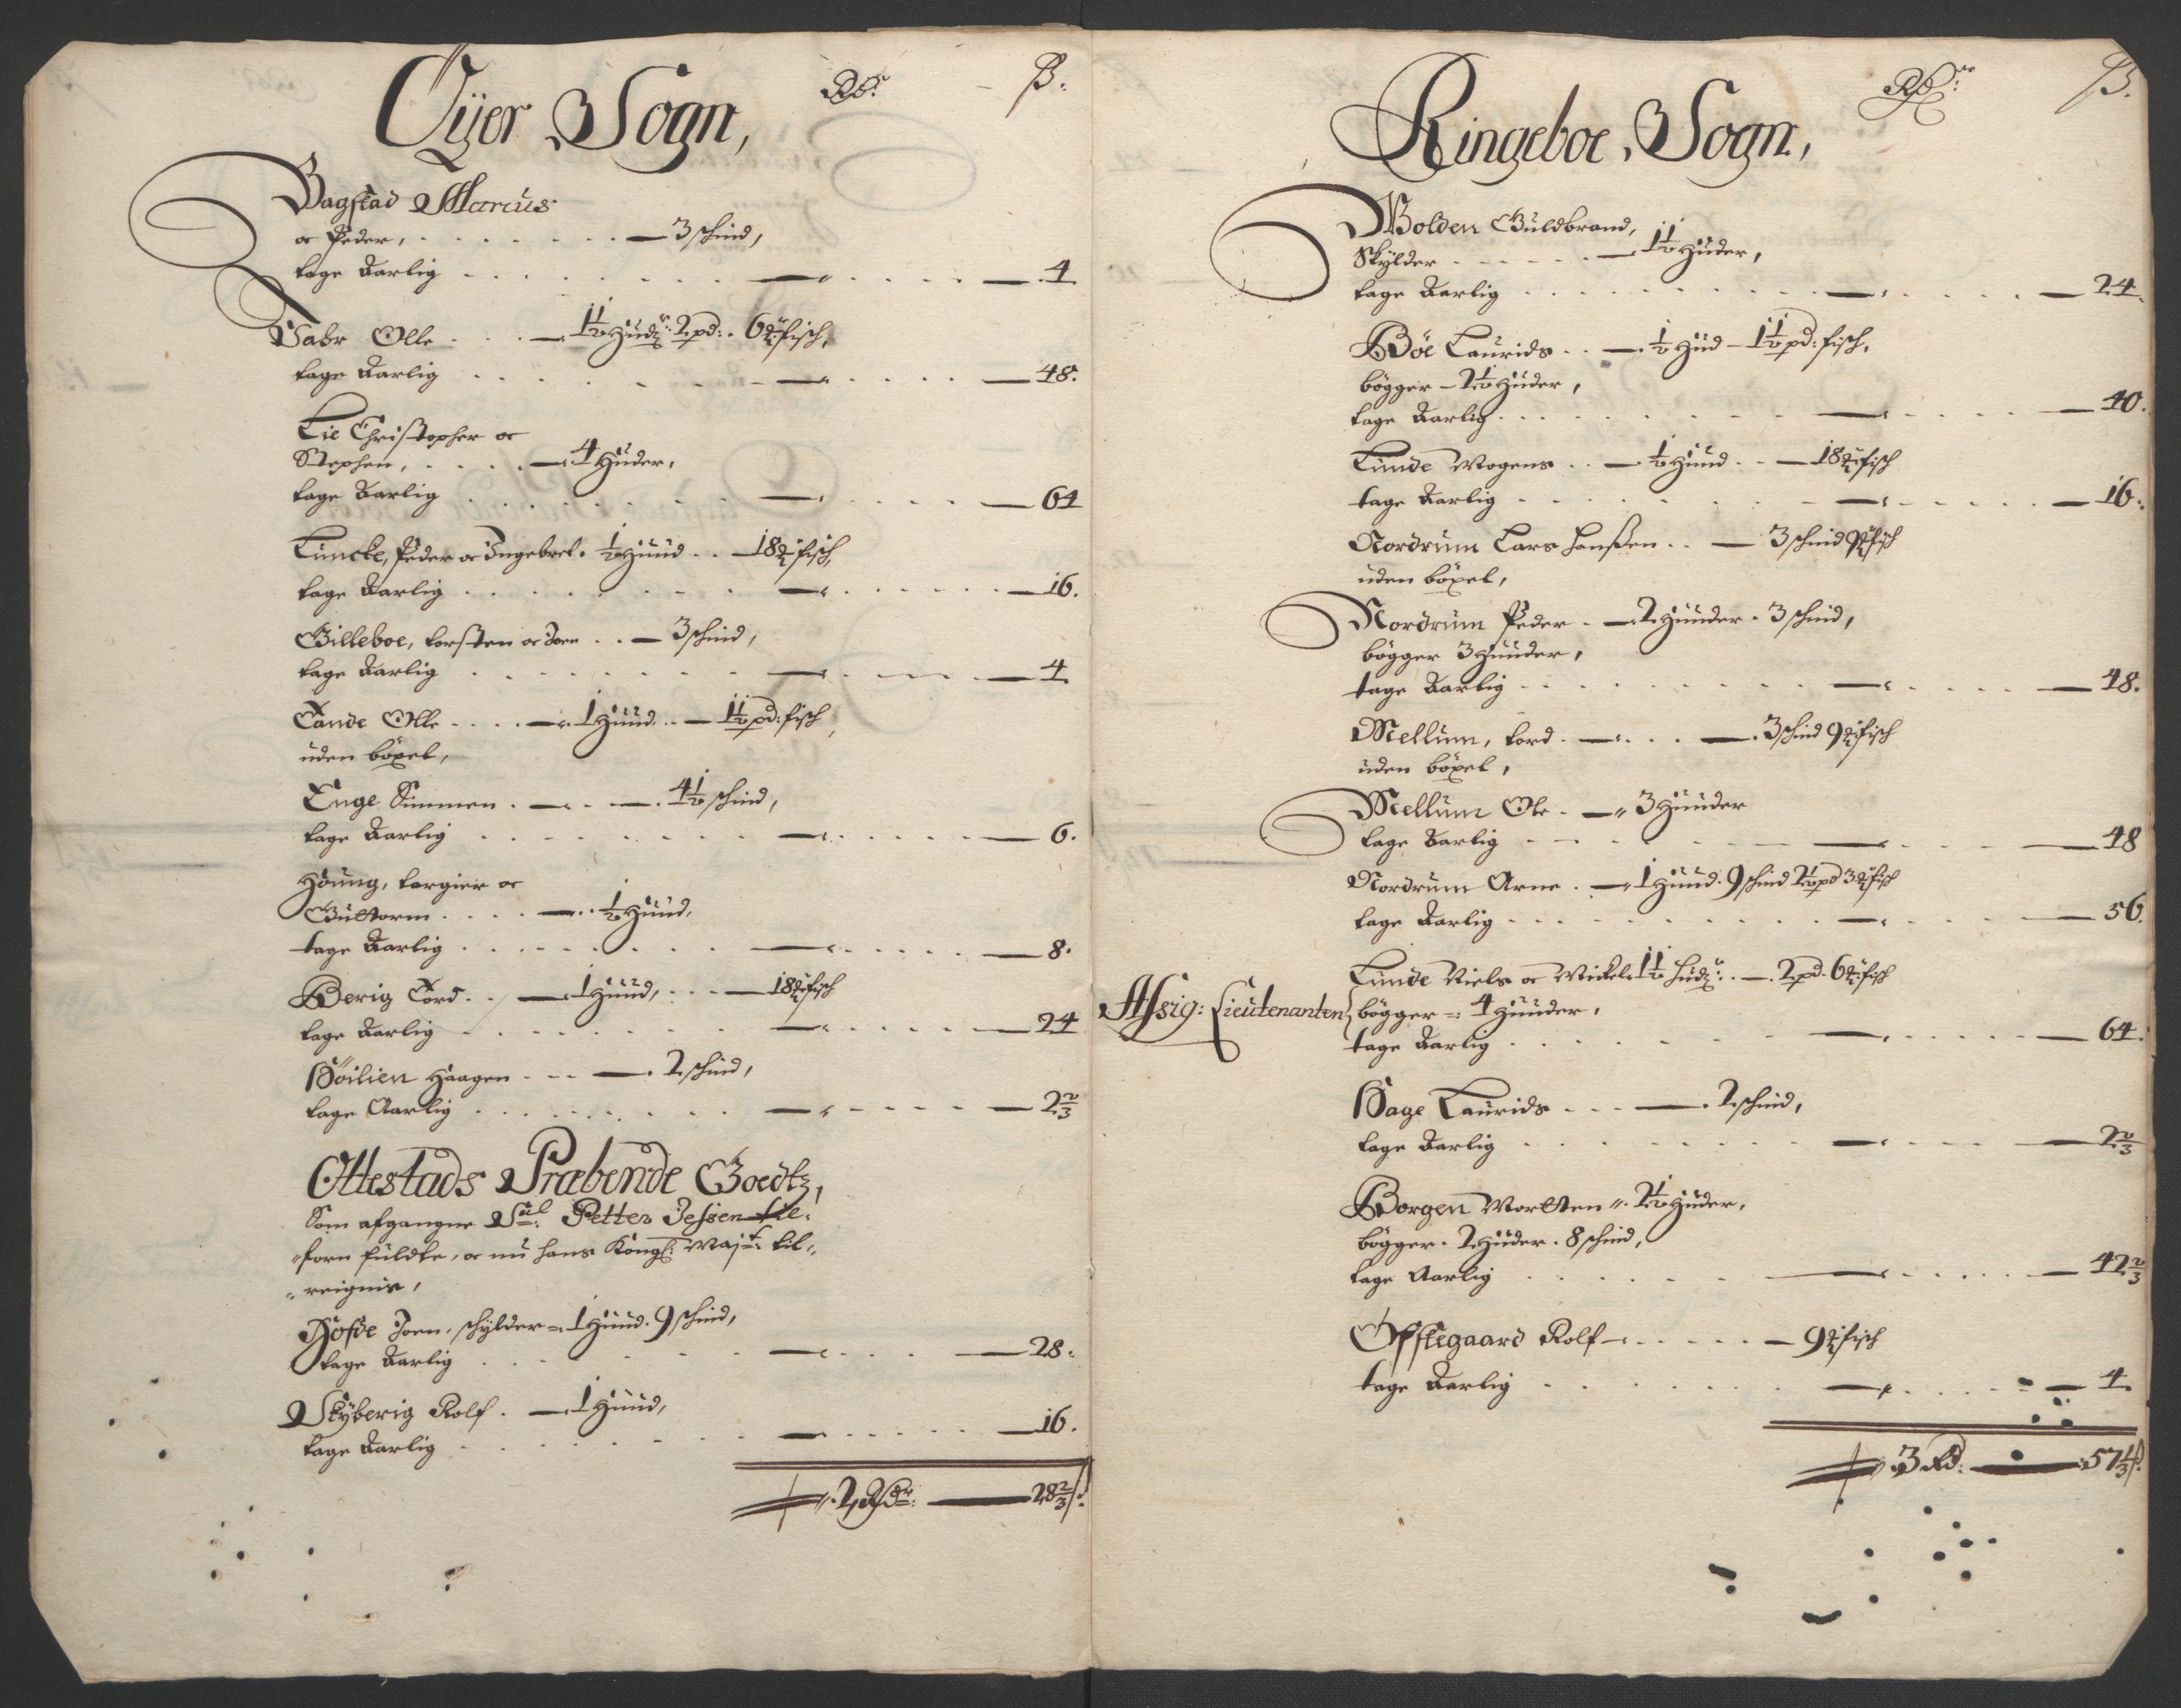 Öyer Sogn, Rdr. ß.
Bagstad Marcus
oc Peder, — 3 schind,
tage Aarlig — 4
Dahr Olle — 1½ Hudr. 2 pd: 6 fisch,
tage Aarlig — 48.
Lie Christopher oc
Stephen, — 4 Huder,
tage Aarlig — 64
Luncke, Peder oc Ingebret. ½ Huud — 18 fisch,
tage Aarlig — 16.
Gilleboe, Torsten oc Joen — 3 schind,
tage Aarlig — 4
Tande Olle — 1 Huud — 1½ pd: fisch,
uden böxel,
Enge Simmen — 4½ schind,
tage Aarlig — 6.
Höung, Torgier oc
Guttorm — ½ Huud,
tage Aarlig — 8.
Berig Tord — 1 Huud, — 18 fisch
tage Aarlig — 24
Böilien Haagen — 2 schind,
tage Aarlig — 2⅔
Ottestads Præbende Goedtz,
Som afgangne Sal: Petter Jessen til-
forn fuldte, oc nu hans Kongl: Majt: til-
reignis,
Hofde Joen, schylder 1 Huud. 9 schind,
tage Aarlig — 28.
Skyberig Rolf — 1 Huud,
tage Aarlig — 16.
2 Rdr: — 28⅔ ß.
Ringeboe Sogn, Rdr. ß.
Wolden Guldbrand,
Skylder — 1½ Huder,
tage Aarlig — 24.
Böe Laurids — ½ Hud — 1½ pd: fisch,
bögger — 2½ Huder,
tage Aarlig — 40.
Lunde Mogens — ½ Huud — 18 fisch
tage Aarlig — 16.
Nordrum Lars Hanßen — 3 schind 9 fisch
uden böxel,
Nordrum Peder — 2 Huuder. 3 schind,
bögger 3 Huuder,
tage Aarlig — 48.
Mellum, Tord — 3 schind 9 fisch
uden böxel,
Mellum Ole — 3 Huuder
tage Aarlig — 48
Nordrum Arne — 1 Huud. 9 schind 2½ pd 3 fisch
tage Aarlig — 56.
Lunde Niels oc Mickel 1½ Hudr. — 2 pd. 6 fisch
Assig: Lieutenanten bögger 4 Huuder,
tage Aarlig — 64.
Hage Laurids — 2 schind,
tage Aarlig — 2⅔
Borgen Mortten 2½ Huder,
bögger. 2 Huder. 8 schind,
tage Aarlig — 42⅔
Opstegaard Rolf — 9 fisch
tage Aarlig — 4
3 Rd: — 57⅓ ß.